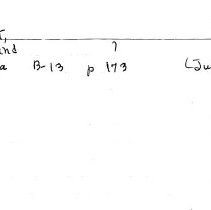 and 7
a B-13 p 173 (Ju